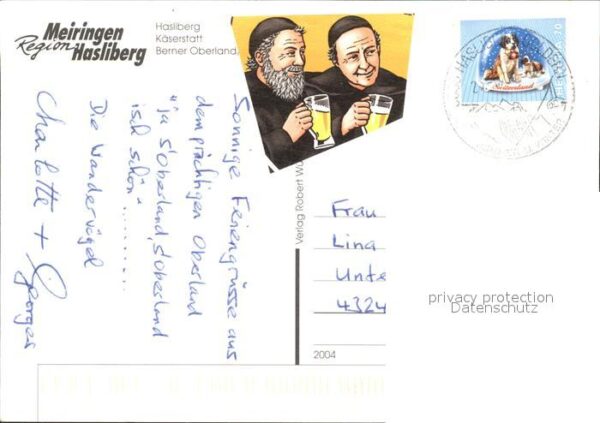 Meiringen
Region Hasliberg
Hasliberg
Käserstatt
Berner Oberland
Sonnige Feriengrüsse aus
dem prächtigen Oberland
"ja s'Oberland, s'Oberland
isch schön"..........
Die Wandervögel
Charlotte + Georges
Verlag Robert
2004
Frau
Lina
Unte
4324
privacy protection
Datenschutz
Switzerland